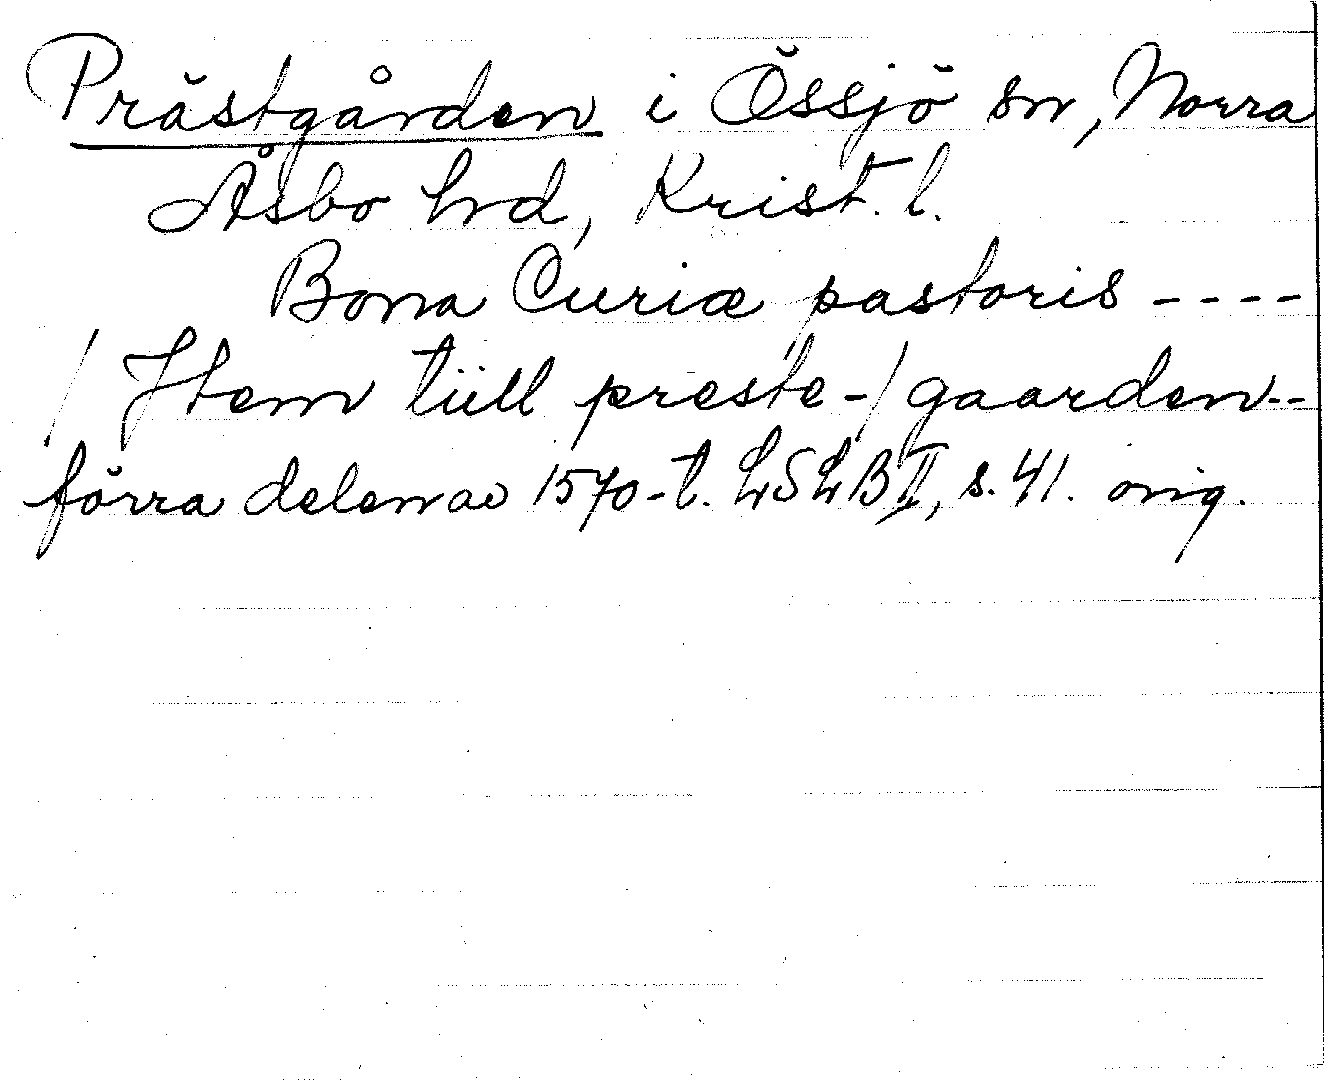 Prästgården i Össjö sn, Norra
Åsbo hrd, Krist. l.
Bona Curiæ pastoris ----
/ Jtem tüll preste-/gaarden--
förra delen av 1570-t. LSLB II, s. 41. orig.